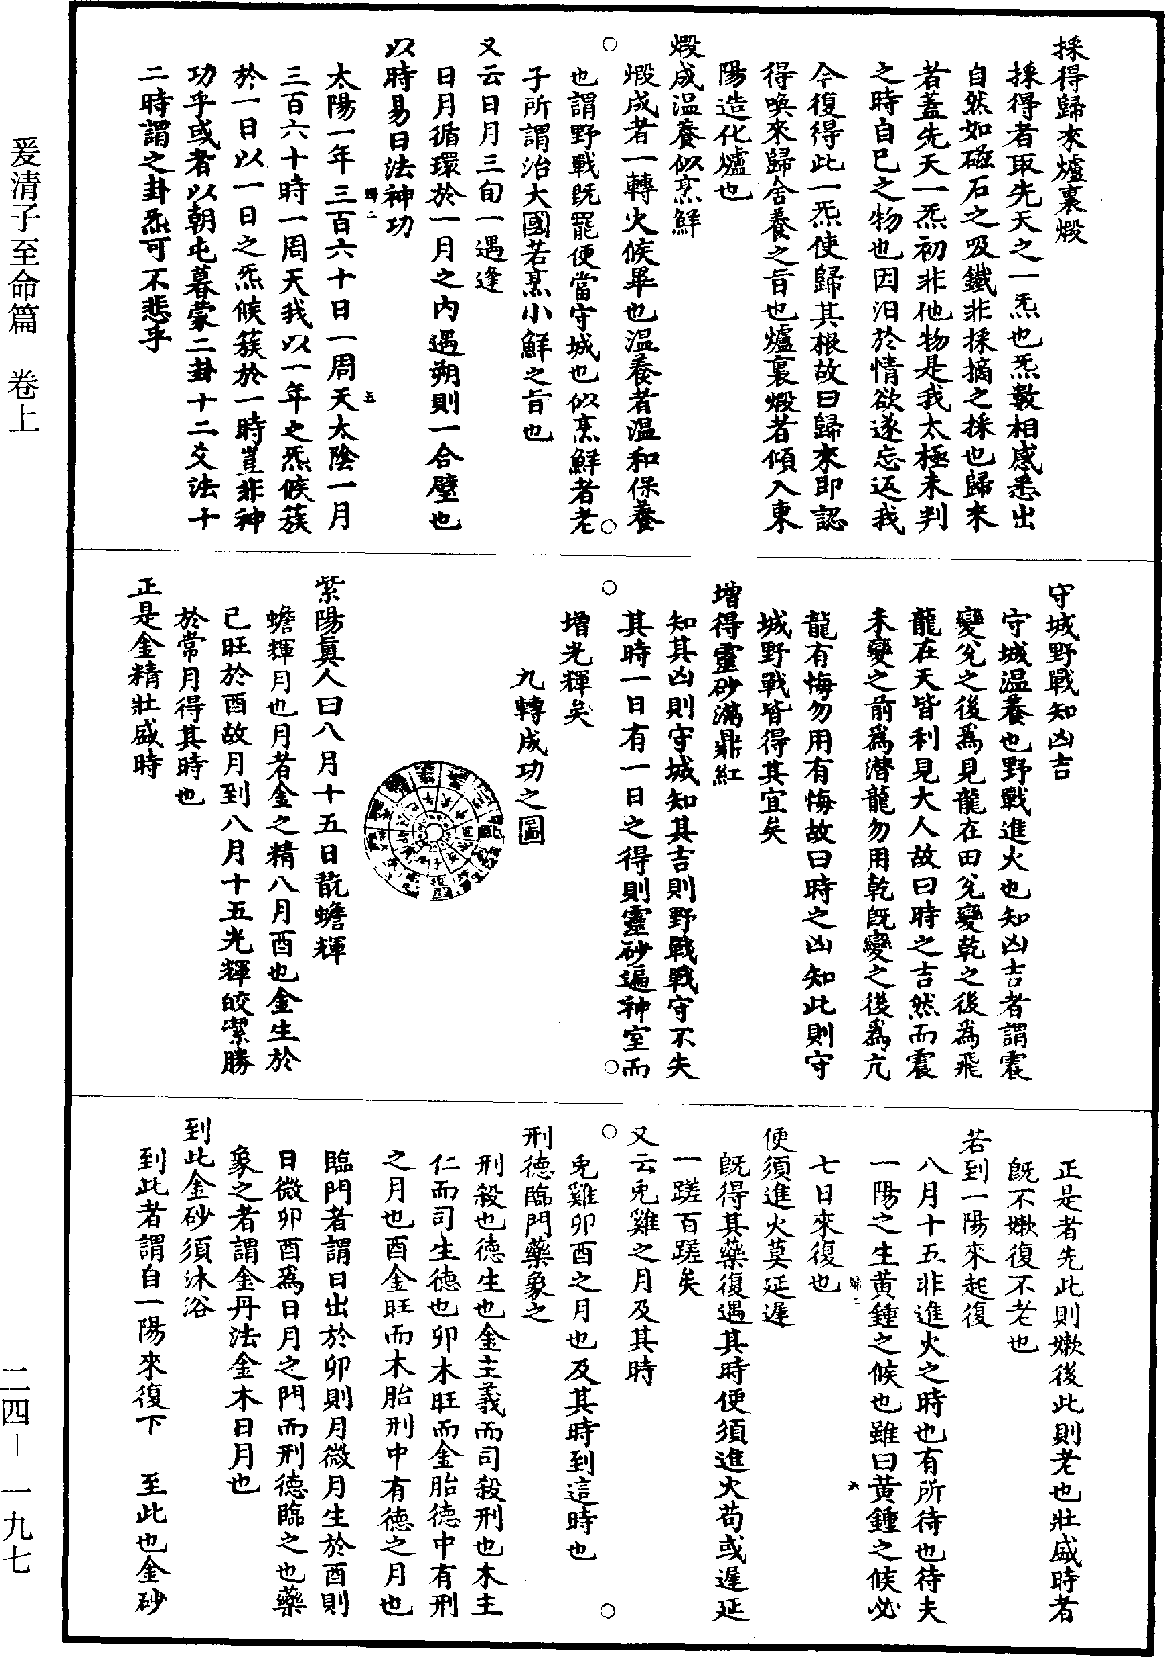 採得歸來爐裏煅
採得者取先天之一炁也炁數相感悉出
自然如磁石之吸鐵非採摘之採也歸來
者蓋先天一炁初非他物是我太極未判
之時自己之物也因汨於情欲遂忘返我
今復得此一炁使歸其根故曰歸來即認
得喚來歸舍養之旨也爐裏煅者傾入東
陽造化爐也
煅成溫養似烹鮮
煅成者一轉火候畢也溫養者溫和保養
也謂野戰既罷便當守城也似烹鮮者老
子所謂治大國若烹小鮮之旨也
又云日月三旬一遇逢
日月循環於一月之內遇朔則一合璧也
以時易日法神功
太陽一年三百六十日一周天太陰一月
三百六十時一周天我以一年之炁候簇
於一日以一日之炁候簇於一時豈非神
功乎或者以朝屯暮蒙二卦十二爻法十
二時謂之卦炁可不悲乎
守城野戰知凶吉
守城溫養也野戰進火也知凶吉者謂震
變兌之後為見龍在田兌變乾之後為飛
龍在天皆利見大人故曰時之吉然而震
未變之前為潛龍勿用乾既變之後為亢
龍有悔勿用有悔故曰時之凶知此則守
城野戰皆得其宜矣
增得靈砂滿鼎紅
知其凶則守城知其吉則野戰戰守不失
其時一日有一日之得則靈砂遍神室而
增光輝矣
九轉成功之圖
紫陽真人曰八月十五日翫蟾輝
蟾輝月也月者金之精八月酉也金生於
己旺於酉故月到八月十五光輝皎潔勝
於常月得其時也
正是金精壯盛時
正是者先此則嫩後此則老也壯盛時者
既不嫩復不老也
若到一陽來起復
八月十五非進火之時也有所待也待夫
一陽之生黃鍾之候也雖曰黃鍾之候必
七日來復也
便須進火莫延遲
既得其藥復遇其時便須進火苟或遲延
一蹉百蹉矣
又云兔雞之月及其時
兔雞卯酉之月也及其時到這時也
刑德臨門藥象之
刑殺也德生也金主義而司殺刑也木主
仁而司生德也卯木旺而金胎德中有刑
之月也酉金旺而木胎刑中有德之月也
臨門者謂日出於卯則月微月生於酉則
日微卯酉為日月之門而刑德臨之也藥
象之者謂金丹法金木日月也
到此金砂須沐浴
到此者謂自一陽來復下　至此也金砂
爰清子至命篇　卷上
二四－一九七